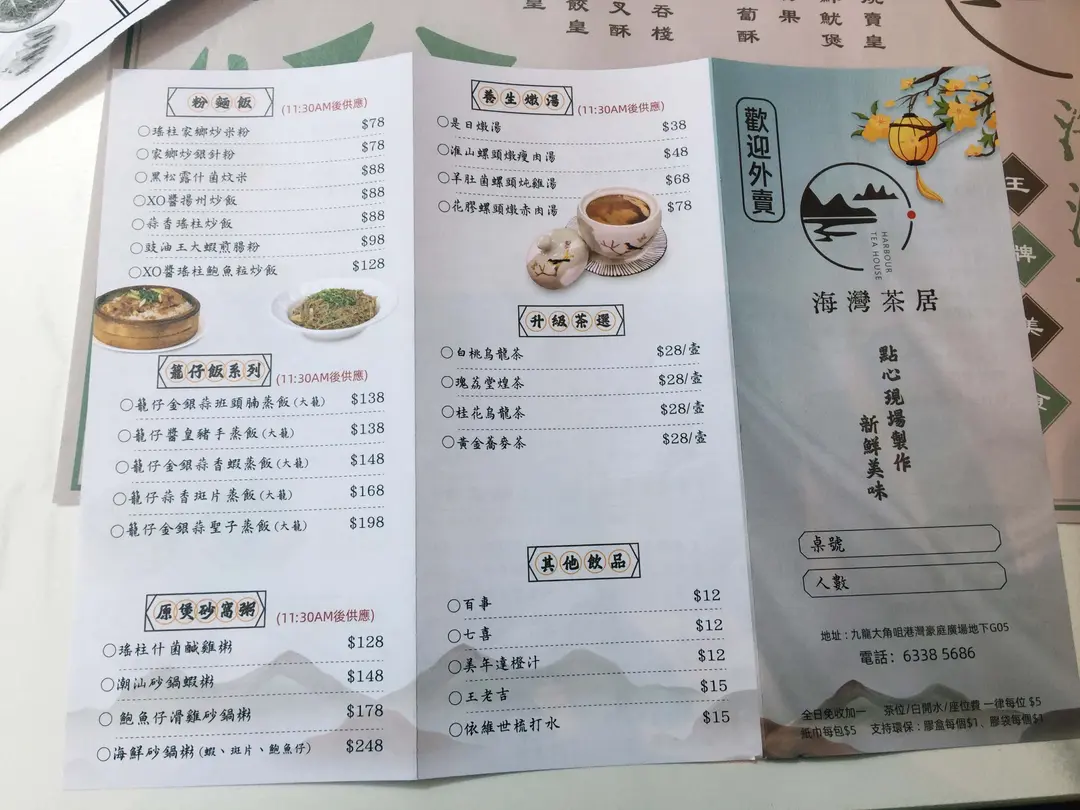 皇
餃皇
叉酥
吞棧
葡酥
果
鮮魷煲
燒賣皇
王
牌
美
食
粉麵飯 (11:30AM後供應)
○瑤柱家鄉炒米粉 $78
○家鄉炒銀針粉 $78
○黑松露什菌炆米 $88
○XO醬揚州炒飯 $88
○蒜香瑤柱炒飯 $88
○豉油王大蝦煎腸粉 $98
○XO醬瑤柱鮑魚粒炒飯 $128
籠仔飯系列 (11:30AM後供應)
○籠仔金銀蒜班頭腩蒸飯(大籠) $138
○籠仔醬皇豬手蒸飯(大籠) $138
○籠仔金銀蒜香蝦蒸飯(大籠) $148
○籠仔蒜香斑片蒸飯(大籠) $168
○籠仔金銀蒜聖子蒸飯(大籠) $198
原煲砂窩粥 (11:30AM後供應)
○瑤柱什菌鹹雞粥 $128
○潮汕砂鍋蝦粥 $148
○鮑魚仔滑雞砂鍋粥 $178
○海鮮砂鍋粥(蝦、斑片、鮑魚仔) $248
養生燉湯 (11:30AM後供應)
○是日燉湯 $38
○淮山螺頭燉瘦肉湯 $48
○羊肚菌螺頭炖雞湯 $68
○花膠螺頭燉赤肉湯 $78
升級茶選
○白桃烏龍茶 $28/壺
○瑰荔堂煌茶 $28/壺
○桂花烏龍茶 $28/壺
○黃金蕎麥茶 $28/壺
其他飲品
○百事 $12
○七喜 $12
○美年達橙汁 $12
○王老吉 $15
○依維世梳打水 $15
歡迎外賣
HARBOUR
TEA HOUSE
海灣茶居
點心現場製作
新鮮美味
桌號
人數
地址：九龍大角咀港灣豪庭廣場地下G05
電話：6338 5686
全日免收加一 茶位/日開水/座位費 一律每位 $5
紙巾每包$5 支持環保：膠盒每個$1、膠袋每個$1